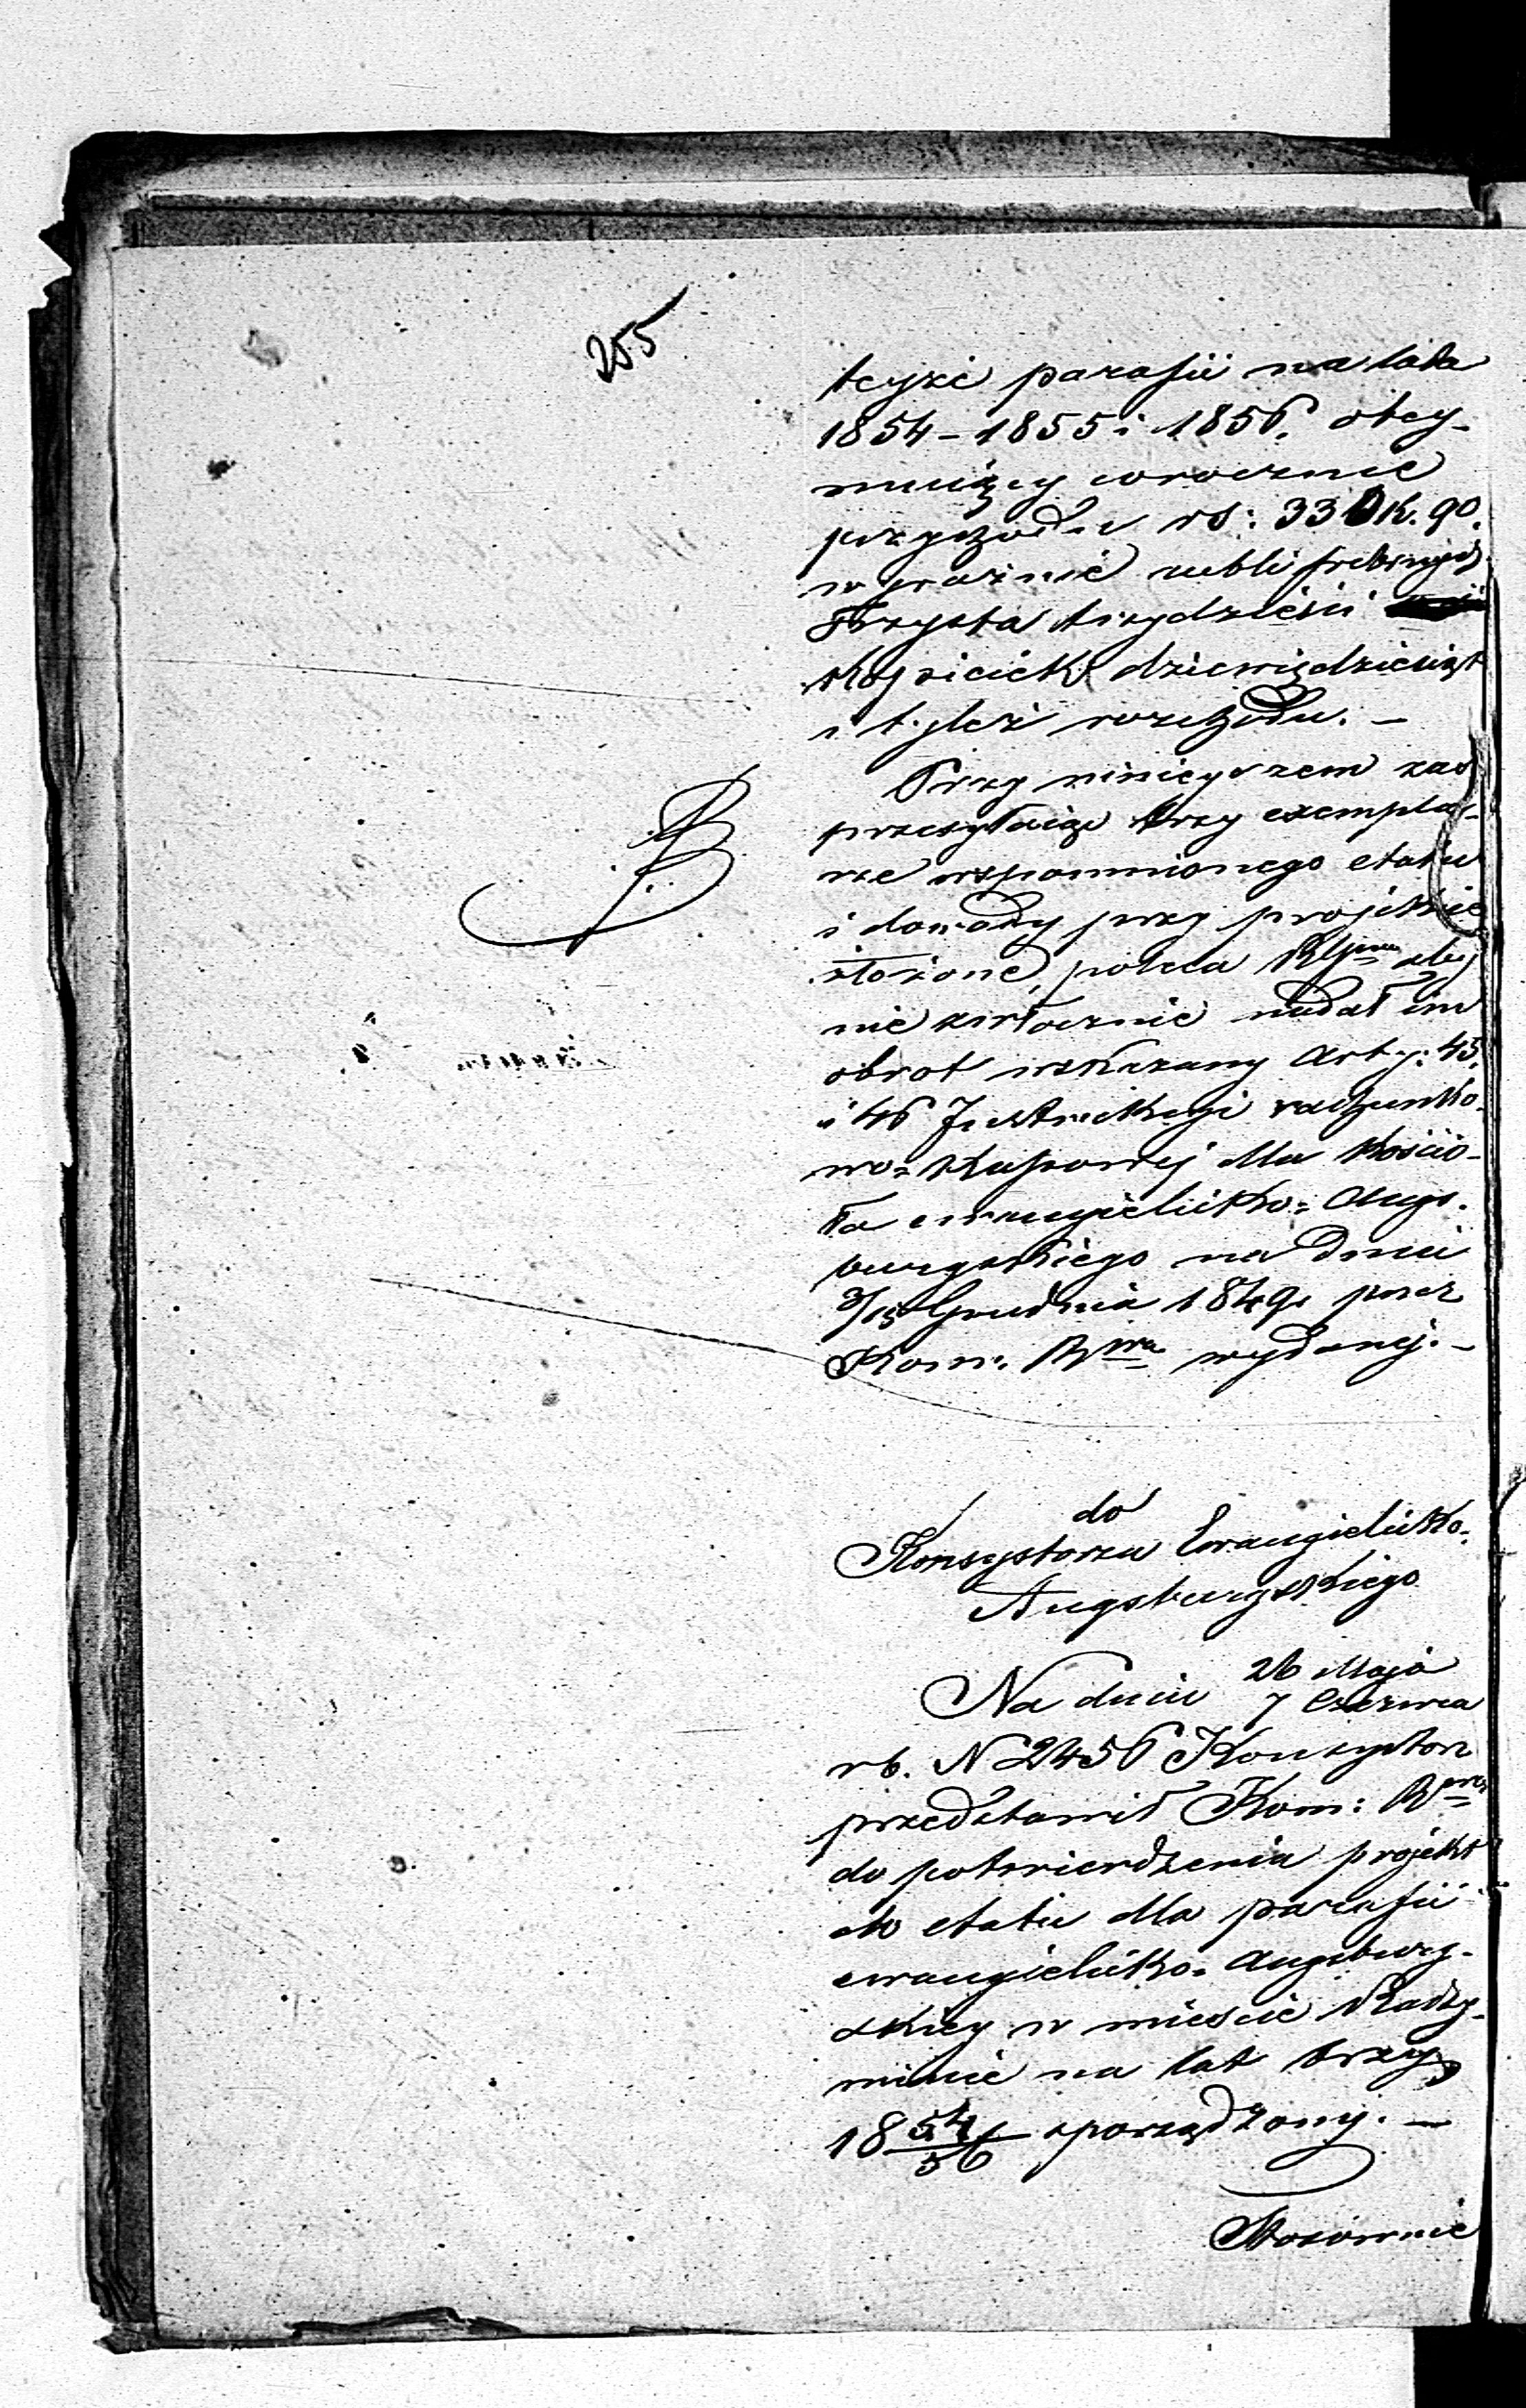 255
teyże parafii na lata
1854 – 1855 i 1856. obey-
muiący corocznie
przychodu rs: 330 k. 90.
wyraźnie rubli srebrnych
Trzysta trzydzieści
kopieiek dziewięćdziesiąt
i tyleż rozchodu. –
Przy ninieyszem zaś
przesyłaiąc trzy exempla-
rze wspomnionego etatu
i dowody przy projekcie
złożone, poleca aby
nie zwłocznie nadał im
obrot wskazany Arty: 45.
i 46 Instrukcyi rachunko-
wo = Kassowej dla Kościo-
ła ewangielicko = Augs.
burgskiego na dniu
3/15 Grudnia 1849 r. przez
Kom. R wydanej. –
do
Konsystorza Ewangielicko =
Augsburgskiego
Na dniu 26 Maja
7 Czerwca
rb. N 2456 Konsystorz
przedstawił Kom: R
do potwierdzenia projekt
do etatu dla parafii
ewangielicko = Augsburg-
skiey w mieście Radzy-
minie na lat trzy
18 54/56 sporządzony. –
Stosownie